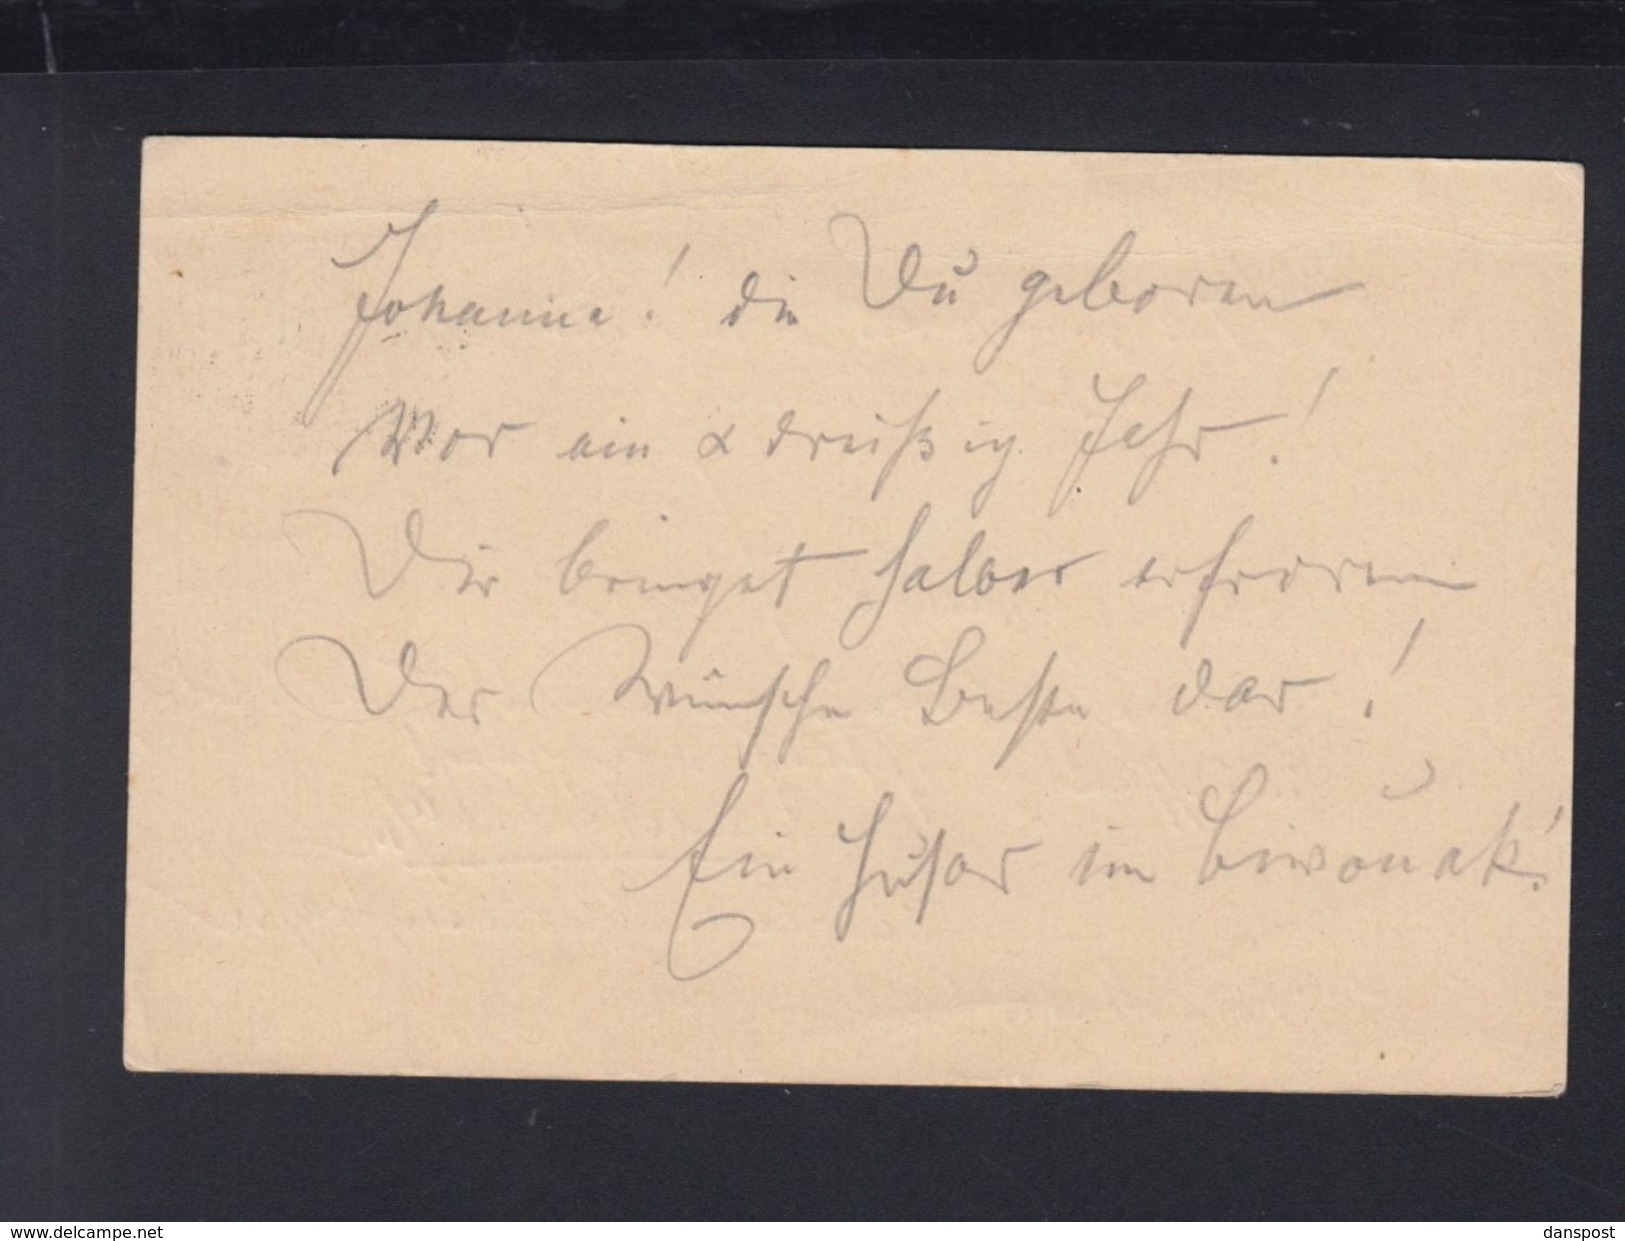 Johanna! die Du geboren
Vor ein & dreißig Jahr!
Dir bringet halber erfroren
Der Wünsche Beste dar!
Ein Husar im Biwouak!
www.delcampe.net
danspost